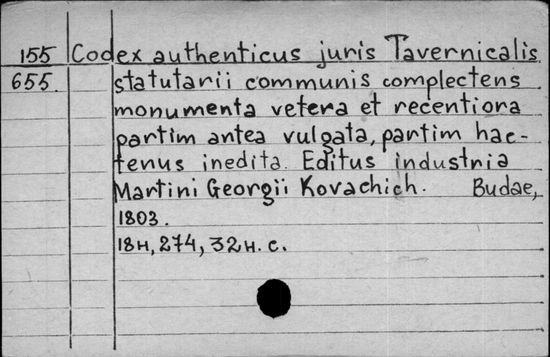 155 Codex authenticus juris Tavernicalis
655. statutarii communis complectens
monumenta vetera et recentiora
partim antea vulgata, partim hac-
tenus inedita. Editus industria
Martini Georgii Kovachich. Budae,
1803.
18н, 274, 32н. с.